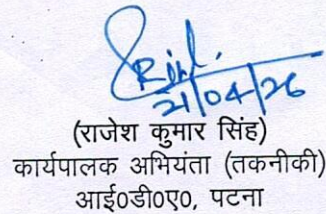 21/04/26
(राजेश कुमार सिंह)
कार्यपालक अभियंता (तकनीकी)
आई०डी०ए०, पटना